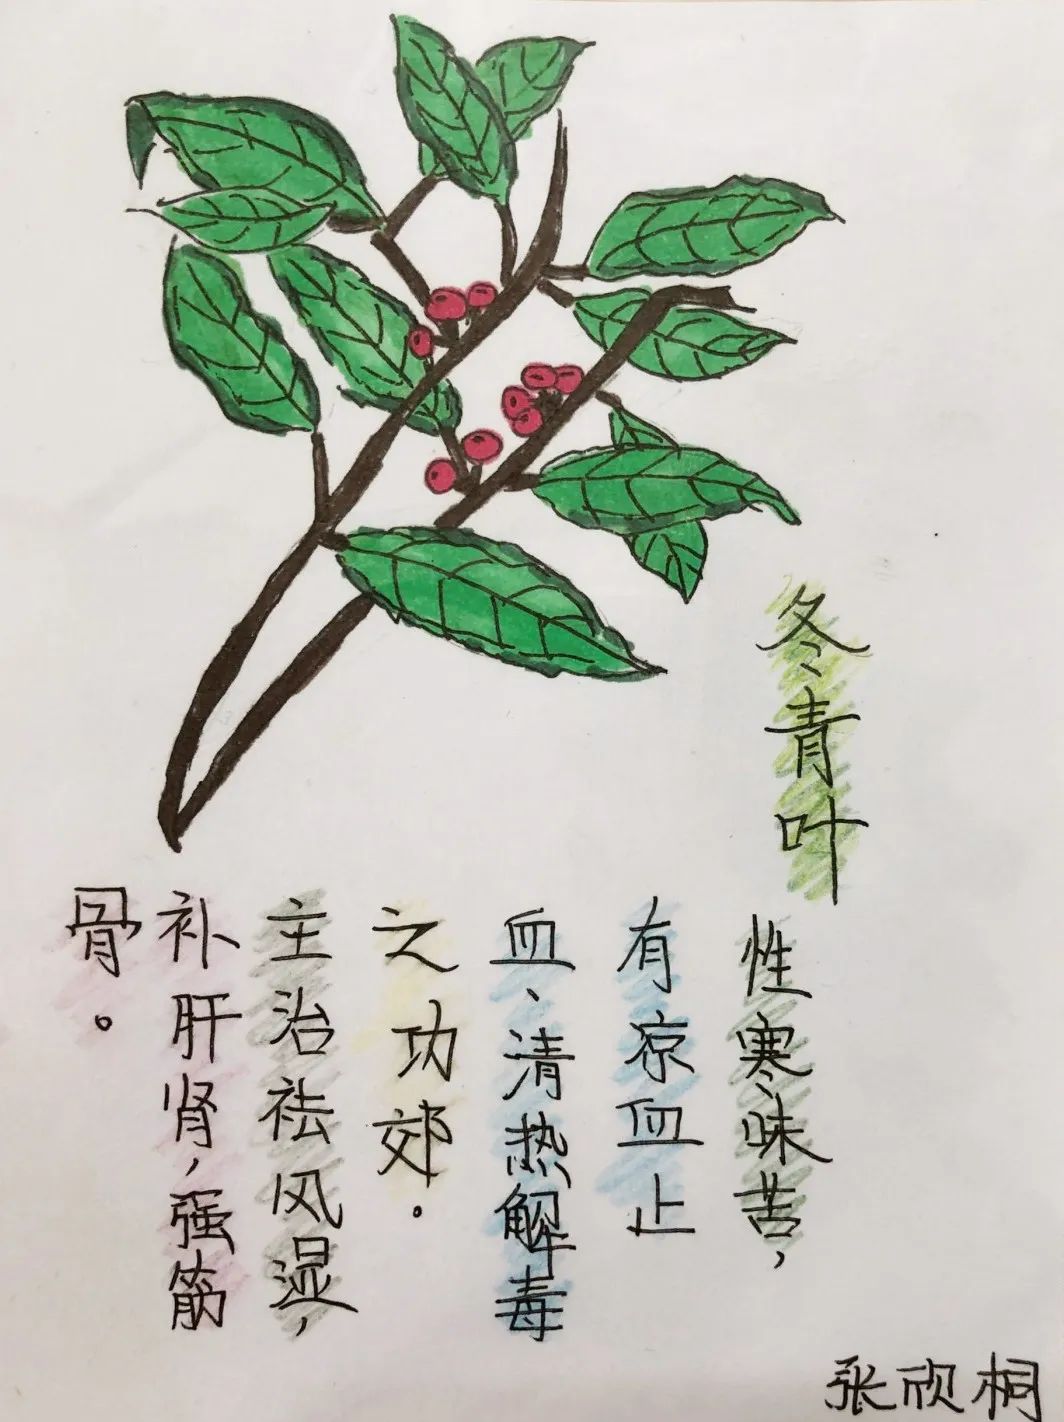 冬青叶
性寒、味苦，
有凉血止
血、清热解毒
之功郊。
主治祛风湿，
补肝肾，强筋
骨。
张欣桐